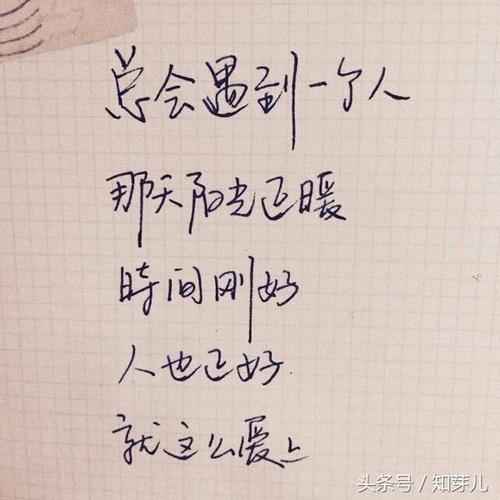 总会遇到一个人
那天阳光正暖
時间刚好
人也正好
就这么爱上
头条号 / 知芽儿